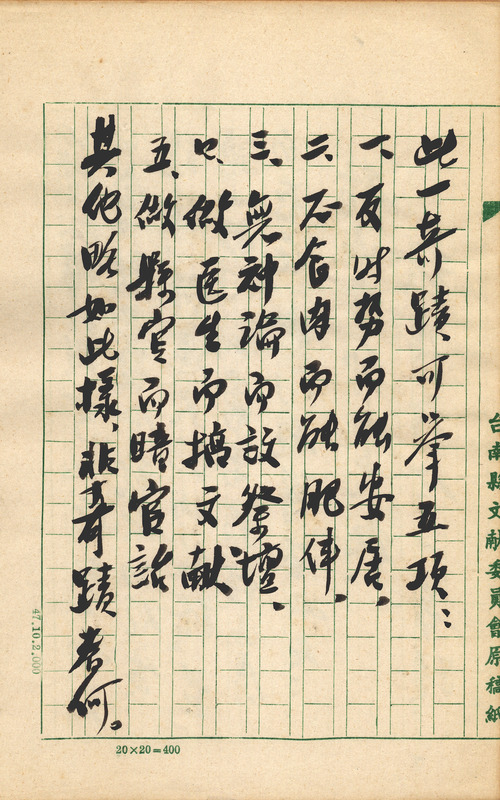 台南縣文献委員會原稿紙
此一奇蹟可以举五項：
一、反时势而能安居、
二、不食肉而能肥体、
三、無神論而設祭壇、
四、做医生而搞文献、
五、做縣官而暗官話
其他略如此樣、非奇蹟者何。
47.10.2.000
20×20=400